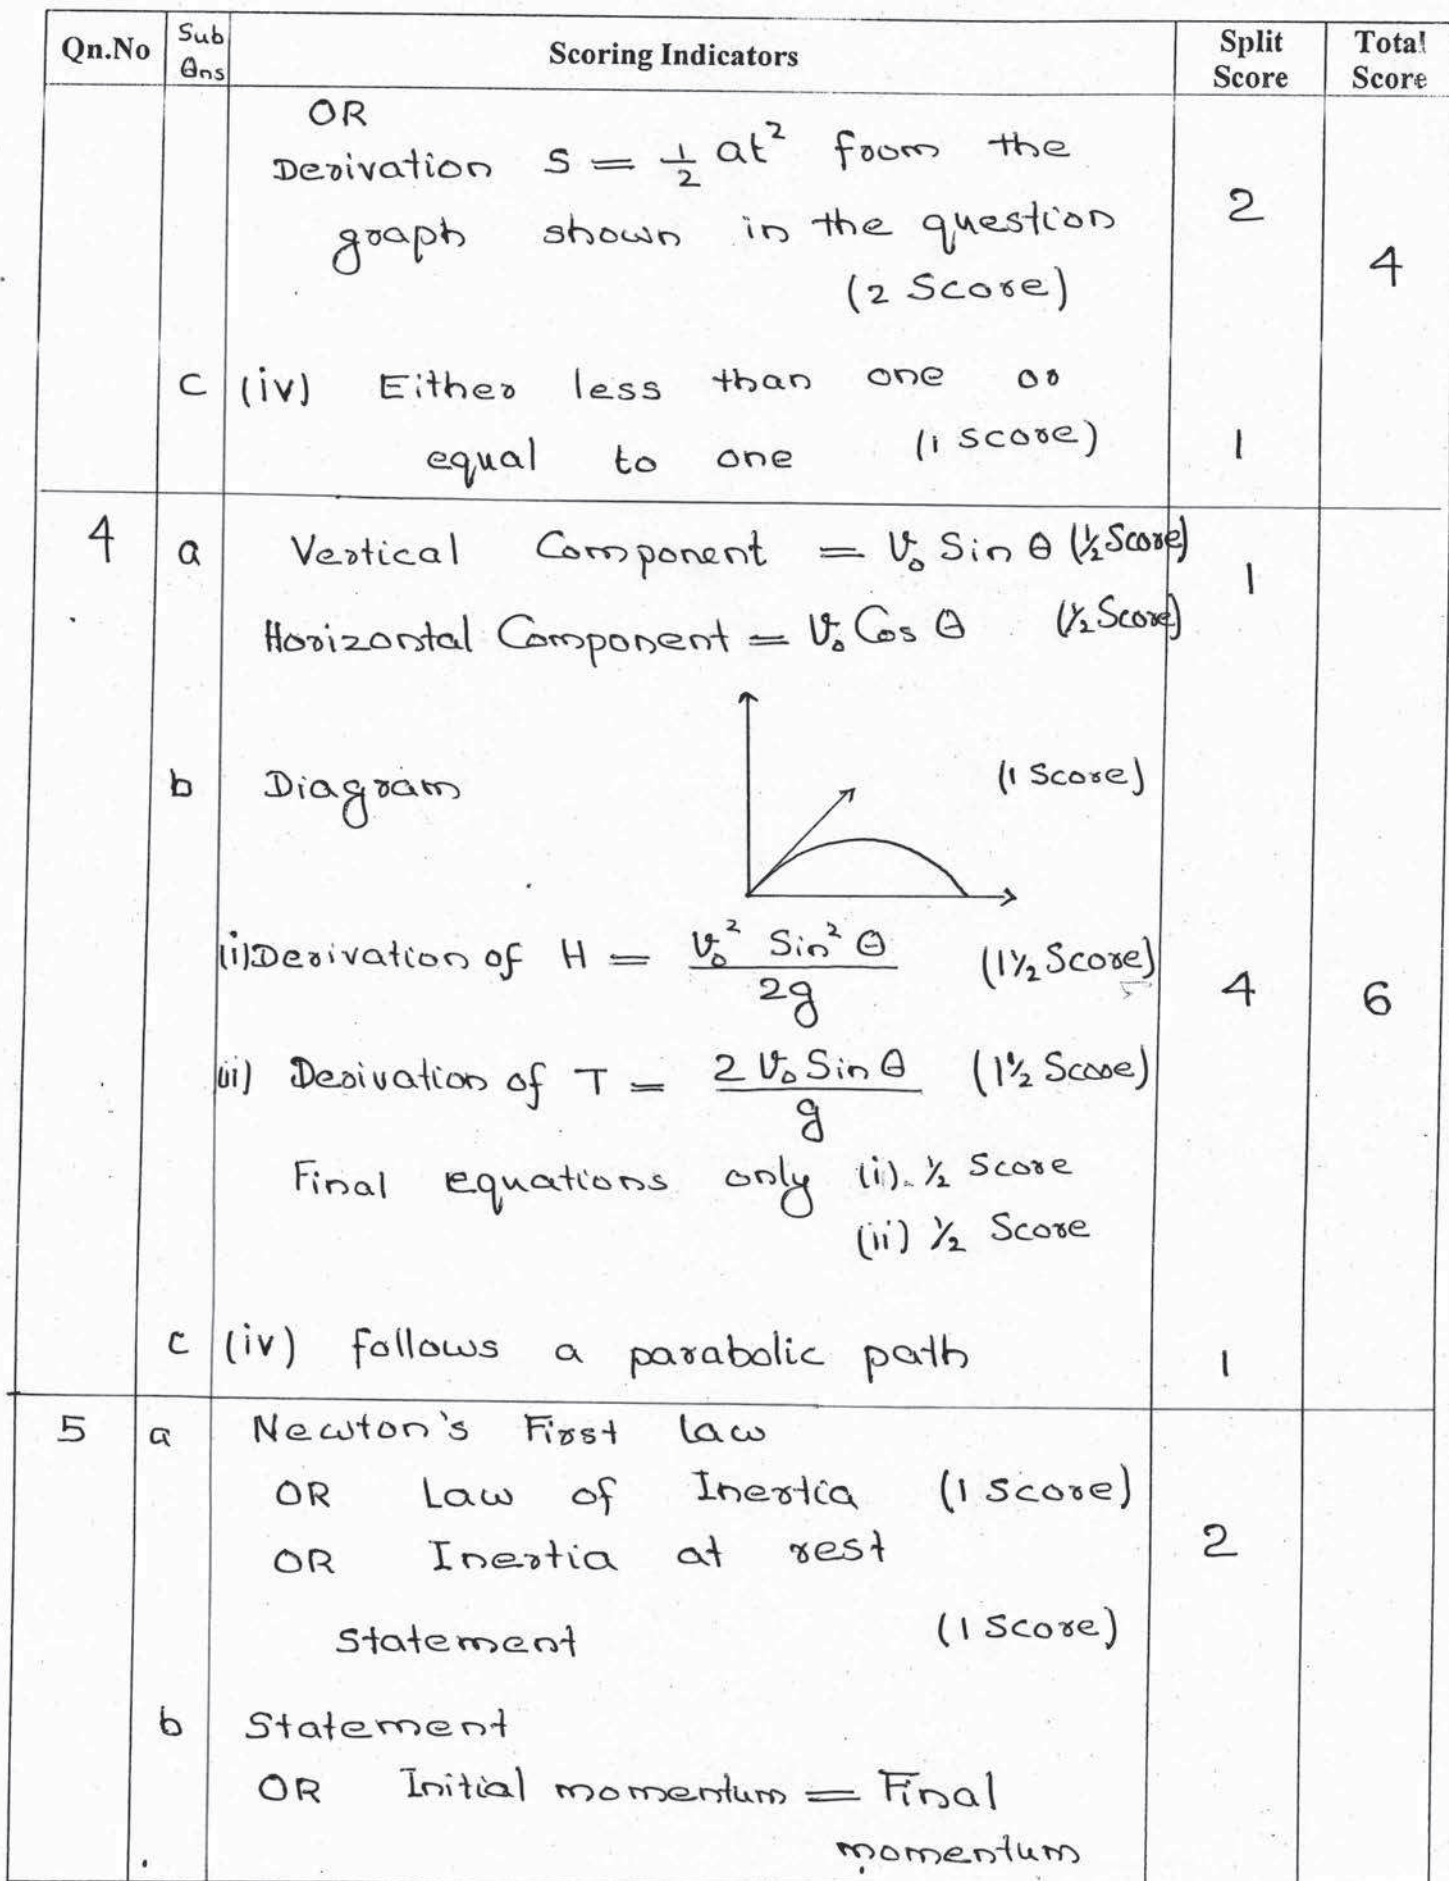 Qn.No Sub Qns Scoring Indicators Split Score Total Score
OR
Derivation S = 1/2 at² from the
graph shown in the question 2
(2 Score) 4
c (iv) Either less than one or
equal to one (1 score) 1
4 a Vertical Component = v₀ Sin θ (½ Score) 1
Horizontal Component = v₀ Cos θ (½ Score)
b Diagram (1 Score)
(i) Derivation of H = v₀² Sin² θ / 2g (1½ Score) 4 6
(ii) Derivation of T = 2 v₀ Sin θ / g (1½ Score)
Final equations only (i). ½ Score
(ii) ½ Score
c (iv) follows a parabolic path 1
5 a Newton's First law
OR Law of Inertia (1 score)
OR Inertia at rest 2
Statement (1 Score)
b Statement
OR Initial momentum = Final
momentum